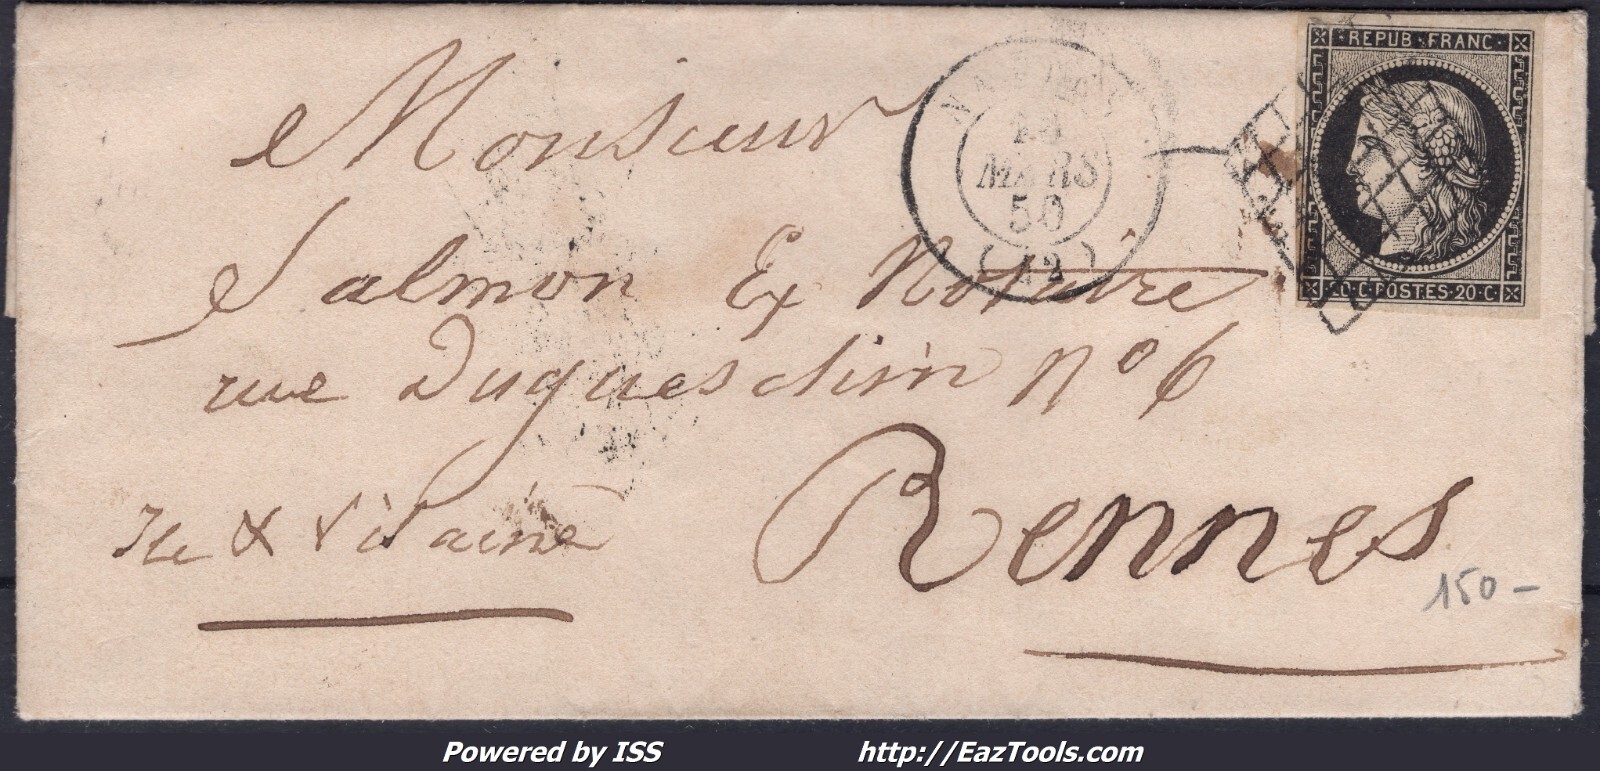 REPUB·FRANC·
Monsieur
MARS
50
Salmon Ex Notaire
20·C·POSTES·20·C
rue Duguesclin n° 6
Ile & Vilaine
Rennes
150-
Powered by ISS
http://EazTools.com